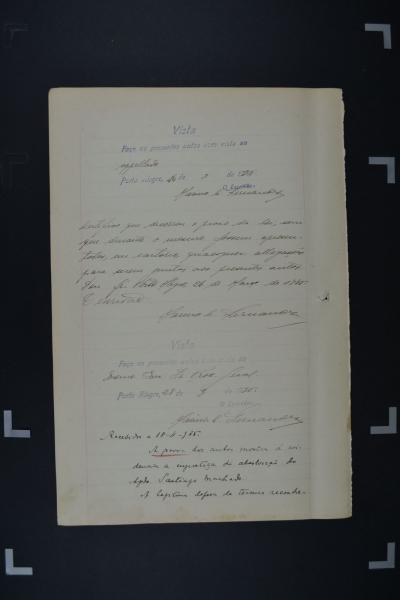 Vista
Faço os presentes autos com vista ao
appellado
Porto Alegre, 26 de 3 de 1935
O Escrivão
Fernandez
Certifico que decorreu o prazo da lei, sem
que durante o mesmo fossem apresen-
tados, em cartorio, quaesquer allegações
para serem juntas aos presentes autos.
Dou fé. Porto Alegre, 26 de Março de 1935
O escrivão
Fernandez
Vista
Faço os presentes autos com vista ao
Exmo. Snr. Dr.
Porto Alegre, 28 de 3 de 1935
O Escrivão
Fernandez
Recebido a 10-4-935.
A prova dos autos mostra á evi-
dencia a injustiça da absolvição do
Apdo. Santiago Machado.
A legitima defesa de terceiro reconhe-